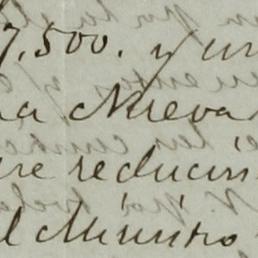 7,500. y un
na Nueva
re reducin
l Ministro